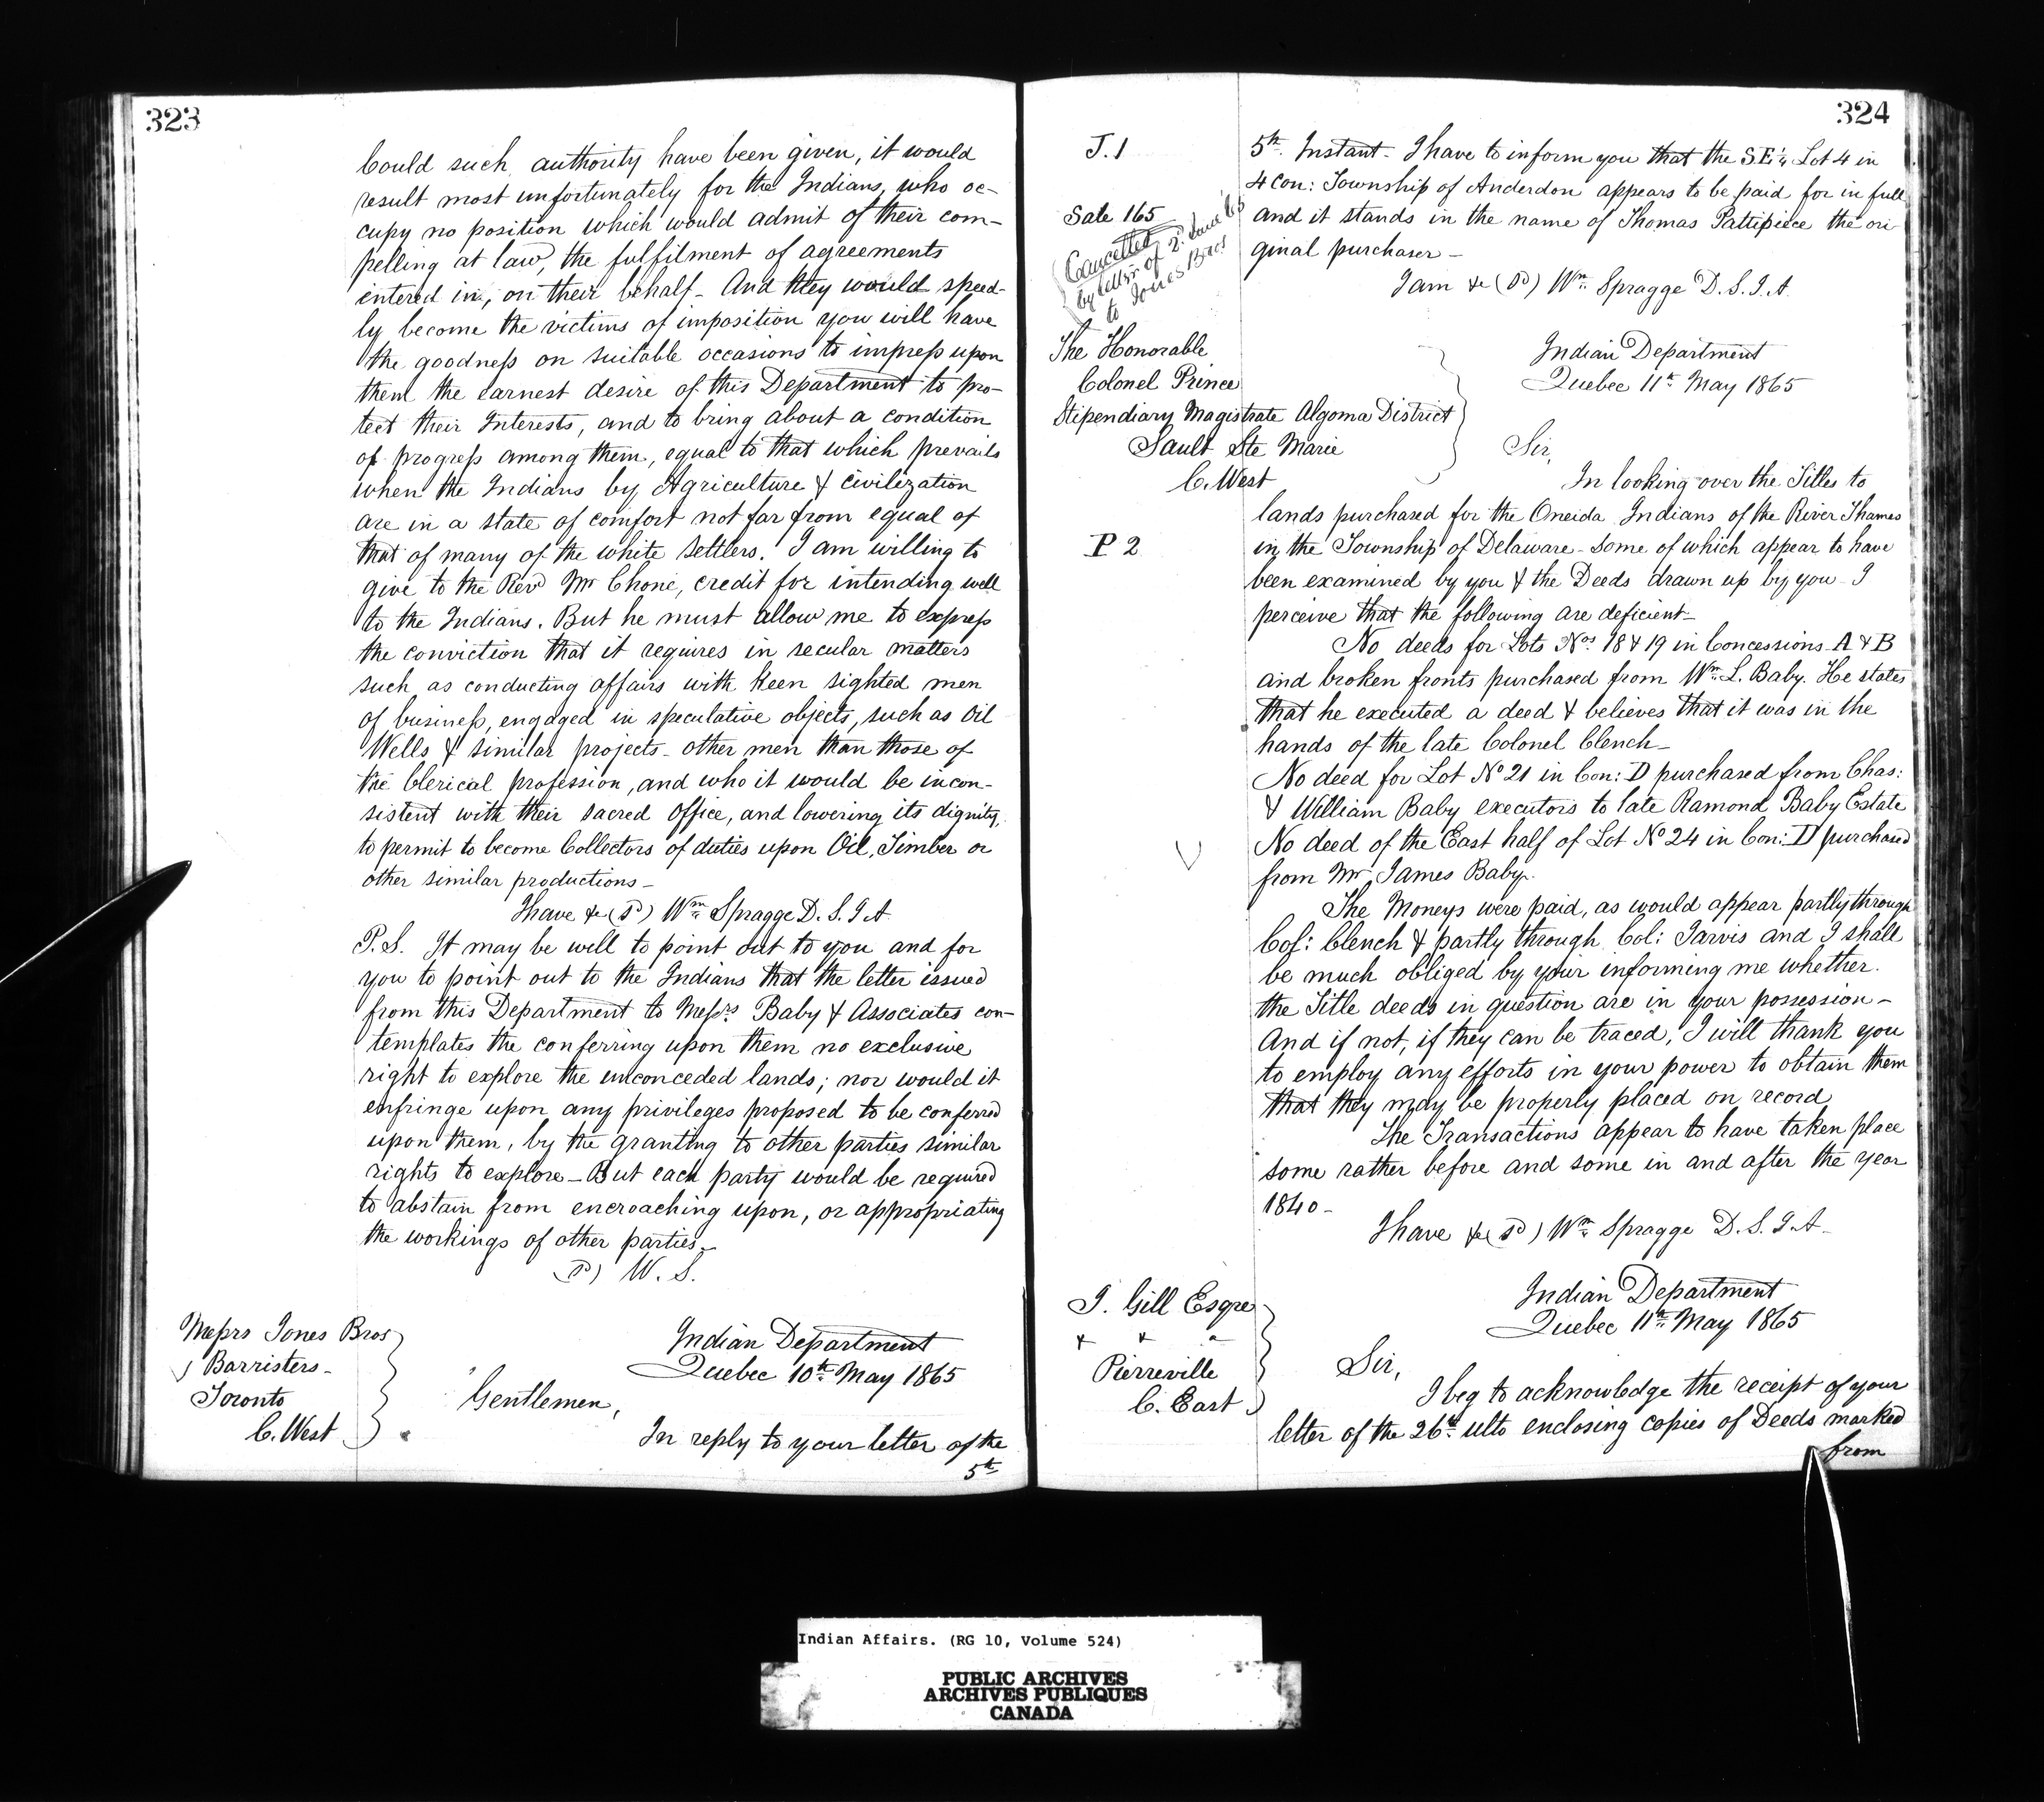 323
Could such authority have been given, it would
result most unfortunately for the Indians, who oc-
cupy no position which would admit of their com-
pelling at law, the fulfilment of agreements
intered in, on their behalf - And they would speed-
ly become the victims of imposition you will have
the goodness on suitable occasions to impress upon
them the earnest desire of this Department to pro-
tect their Interests, and to bring about a condition
of progress among them, equal to that which prevails
when the Indians by Agriculture & civilization
are in a state of comfort not far from equal of
that of many of the white settlers. I am willing to
give to the Revd Mr Chone, credit for intending well
to the Indians. But he must allow me to express
the conviction that it requires in secular matters
such as conducting affairs with keen sighted men
of business, engaged in speculative objects, such as Oil
Wells & similar projects - other men than those of
the Clerical profession, and who it would be incon-
sistent with their sacred Office, and lowering its dignity,
to permit to become Collectors of duties upon Oil, Timber or
other similar productions -
I have &c (Sd) Wm Spragge D. S. I. A
P.S. It may be will to point out to you and for
you to point out to the Indians that the letter issued
from this Department to Messrs Baby & Associates con-
templates the conferring upon them no exclusive
right to explore the unconceded lands; nor would it
enfringe upon any privileges proposed to be conferred
upon them, by the granting to other parties similar
rights to explore - But each party would be required
to abstain from encroaching upon, or appropriating
the workings of other parties -
(Sd) W. S.
Messrs Jones Bros
Barristers -
Toronto
C. West
Indian Department
Quebec 10th May 1865
Gentlemen,
In reply to your letter of the
5th
324
J. 1
5th Instant - I have to inform you that the S.E. ¼ Lot 4 in
4 Con: Township of Anderdon appears to be paid for in full
Sale 165
and it stands in the name of Thomas Pattipiece the ori
ginal purchaser -
Cancelled
by letter of 2d June 65
to Jones Bros
I am &c (Sd) Wm Spragge D. S. I. A
The Honorable
Colonel Prince
Stipendiary Magistrate Algoma District
Sault Ste Marie
C. West
Indian Department
Quebec 11th May 1865
Sir,
In looking over the Titles to
lands purchased for the Oneida Indians of the River Thames
P 2
in the Township of Delaware - some of which appear to have
been examined by you & the Deeds drawn up by you - I
perceive that the following are deficient -
No deeds for Lots Nos 18 & 19 in Concessions A & B
and broken fronts purchased from Wm L. Baby. He states
that he executed a deed & believes that it was in the
hands of the late Colonel Clench -
No deed for Lot No 21 in Con: D purchased from Chas:
& William Baby executors to late Ramond Baby Estate
No deed of the East half of Lot No 24 in Con: D purchased
from Mr James Baby.
The Moneys were paid, as would appear partly through
Col: Clench & partly through Col: Jarvis and I shall
be much obliged by your informing me whether
the Title deeds in question are in your possession -
And if not, if they can be traced, I will thank you
to employ any efforts in your power to obtain them
that they may be properly placed on record
The Transactions appear to have taken place
some rather before and some in and after the year
1840 -
I have &c (Sd) Wm Spragge D. S. I. A -
I. Gill Esqre
Pierreville
C. East
Indian Department
Quebec 11th May 1865
Sir,
I beg to acknowledge the receipt of your
letter of the 26th ulto enclosing copies of Deeds marked
from
Indian Affairs. (RG 10, Volume 524)
PUBLIC ARCHIVES
ARCHIVES PUBLIQUES
CANADA